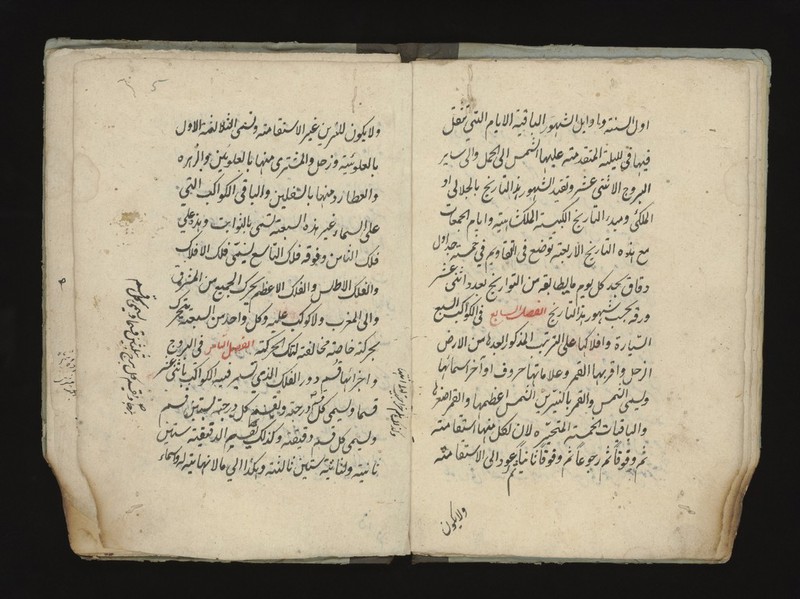 اول السنة واوايل الشهور الباقية الايام التي تنقل
فيها فى الليلة المتقدمة عليها الشمس الى الحمل والى ساير
البروج الاثنى عشر وتقيد الشهور بهذا التاريخ بالجلالى او
الملكى ومبدء التاريخ الكبيسة الملكشاهية وايام الجمعات
مع هذه التاريخ الاربعة توضع فى التقاويم فى خمسة جداول
دقاق بحد كل يوم ما يطابقه من التواريخ بعدد اثنى عشر
ورقة بحسب شهور هذا التاريخ الفصل السابع فى الكواكب السبع
السيارة وافلاكها على الترتيب المذكور ابعدها من الارض
زحل واقربها القمر وعلاماتها حروف اواخر اسمائها
ويسمى الشمس والقمر بالنيرين الشمس اعظمهما والقمر اصغرهما
والباقيات الخمسة المتحيرة لان لكل منها استقامة
ثم وقوفاً ثم رجوعاً ثم وقوفاً ثانياً ثم عود الى الاستقامة
ولا يكون
ولا يكون للنيرين غير الاستقامة وتسمى الثلاثة الاول
بالعلوية وزحل والمشترى منها بالعلويين والزهره
والعطارد منها بالسفليين والباقى الكواكب التى
على السماء غير هذه السبعة تسمى بالثوابت وهذه على
فلك الثامن وفوقه فلك التاسع يسمى فلك الافلاك
والفلك الاطلس والفلك الاعظم يحرك الجميع من المشرق
والى المغرب ولا كوكب عليه وكل واحد من السبعة يتحرك
بحركة خاصة مخالفة لتلك الحركة الفصل الثامن فى البروج
واجزائها قسم دور الفلك الذى تسير فيه الكواكب باثنى عشر
قسما ويسمى كل درجة وقسم كل درجة بستين قسم
ويسمى كل قسم دقيقة وكذلك تقسيم الدقيقة ستين
ثانية والثانية ستين ثالثة وهكذا الى ما لا نهاية له وسماء